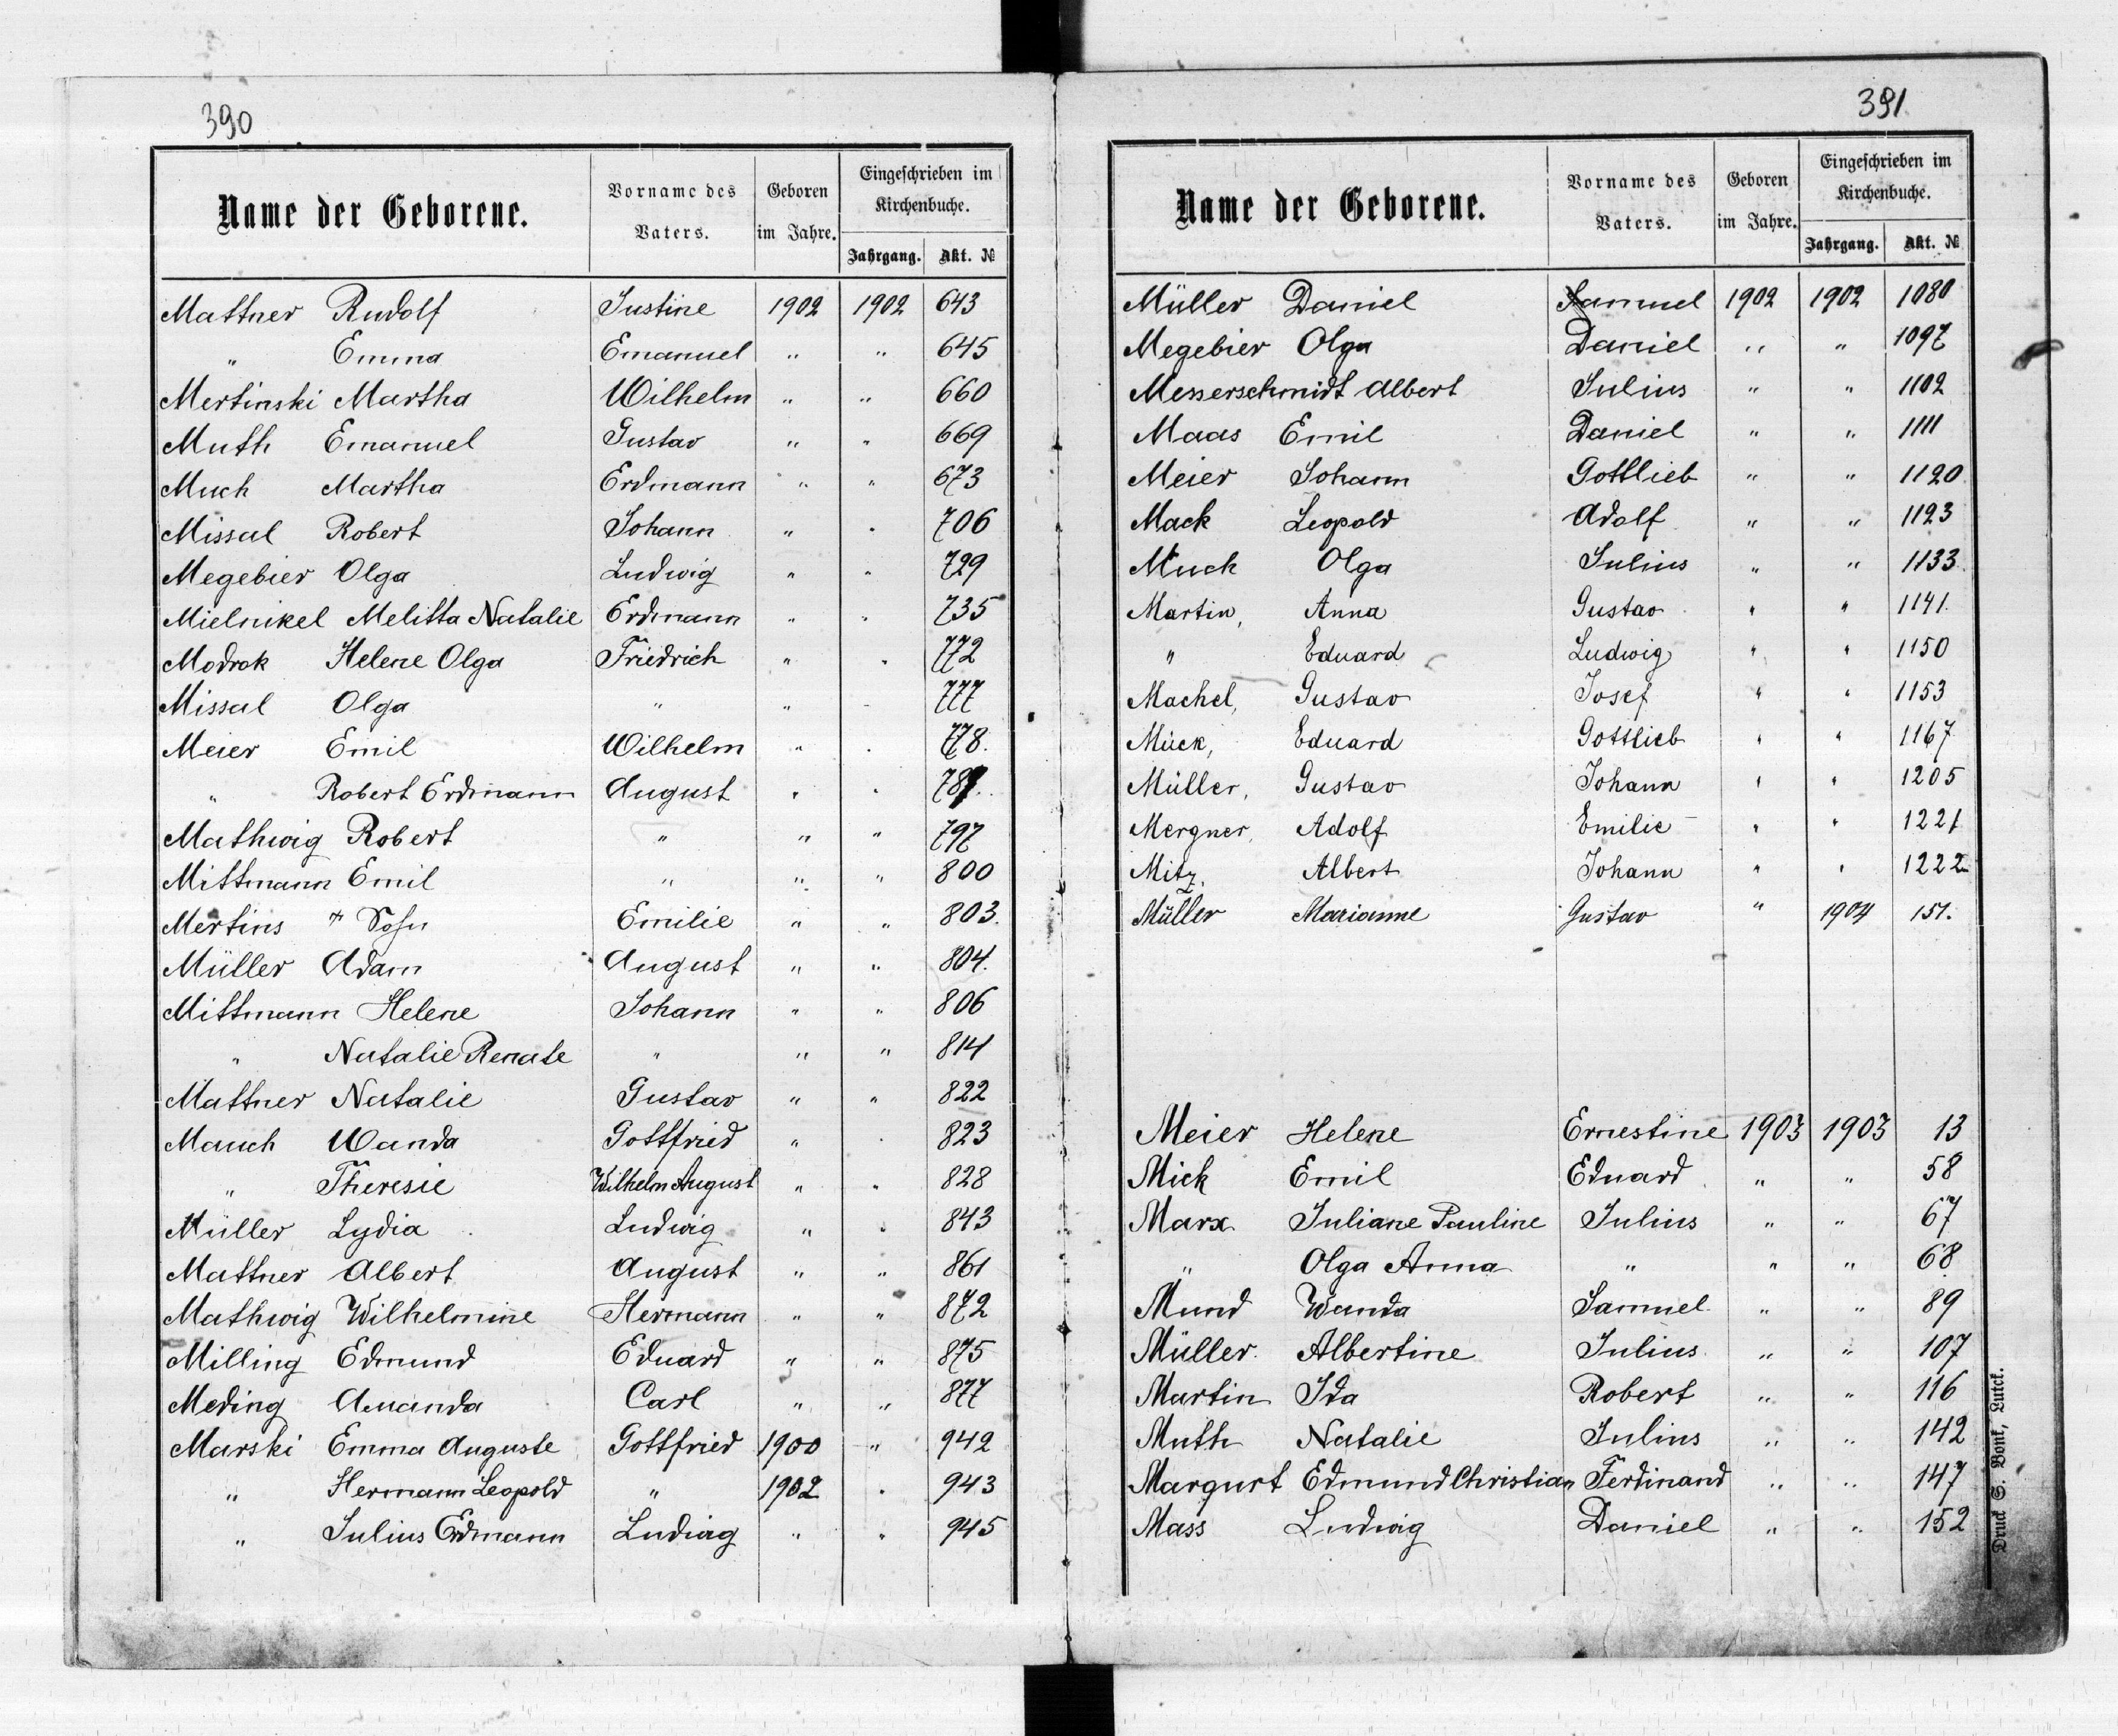 390
Name der Geborene. Vorname des Vaters. Geboren im Jahre. Eingeschrieben im Kirchenbuche. Jahrgang. Akt. №
Mattner Rudolf Justine 1902 1902 643
" Emma Emanuel " " 645
Mertinski Martha Wilhelm " " 660
Muth Emanuel Gustav " " 669
Much Martha Erdmann " " 673
Missal Robert Johann " " 706
Megebier Olga Ludwig " " 729
Mielnikel Melitta Natalie Erdmann " " 735
Modrok Helene Olga Friedrich " " 772
Missal Olga " " " 777
Meier Emil Wilhelm " " 778.
" Robert Erdmann August " "
Mathwig Robert " " " 797
Mittmann Emil " " " 800
Mertins + Sohn Emilie " " 803.
Müller Adam August " " 804.
Mittmann Helene Johann " " 806
" Natalie Renate " " " 814
Mattner Natalie Gustav " " 822
Mauch Wanda Gottfried " " 823
" Theresie Wilhelm August " " 828
Müller Lydia Ludwig " " 843
Mattner Albert August " " 861
Mathwig Wilhelmine Hermann " " 872
Milling Edmund Eduard " " 875
Meding Amanda Carl " " 877
Marski Emma Auguste Gottfried 1900 " 942
" Hermann Leopold " 1902 " 943
" Julius Erdmann Ludwig " " 945
391
Name der Geborene. Vorname des Vaters. Geboren im Jahre. Eingeschrieben im Kirchenbuche. Jahrgang. Akt. №
Müller Daniel Samuel 1902 1902 1080
Megebier Olga Daniel " " 1097
Messerschmidt Albert Julius " " 1102
Maas Emil Daniel " " 1111
Meier Johann Gottlieb " " 1120
Mack Leopold Adolf " " 1123
Muck Olga Julius " " 1133
Martin, Anna Gustav " " 1141.
" Eduard Ludwig " " 1150
Machel, Gustav Josef " " 1153
Mück, Eduard Gottlieb " " 1167
Müller, Gustav Johann " " 1205
Mergner, Adolf Emilie " " 1221
Mitz, Albert Johann " " 1222
Müller Marianne Gustav " 1904 151.
Meier Helene Ernestine 1903 1903 13
Mick Emil Eduard " " 58
Marx Juliane Pauline Julius " " 67
" Olga Anna " " " 68
Mund Wanda Samuel " " 89
Müller Albertine Julius " " 107
Martin Ida Robert " " 116
Muth Natalie Julius " " 142
Margurt Edmund Christian Ferdinand " " 147
Mass Ludwig Daniel " " 152
Druck S. Bonk, Lutck.